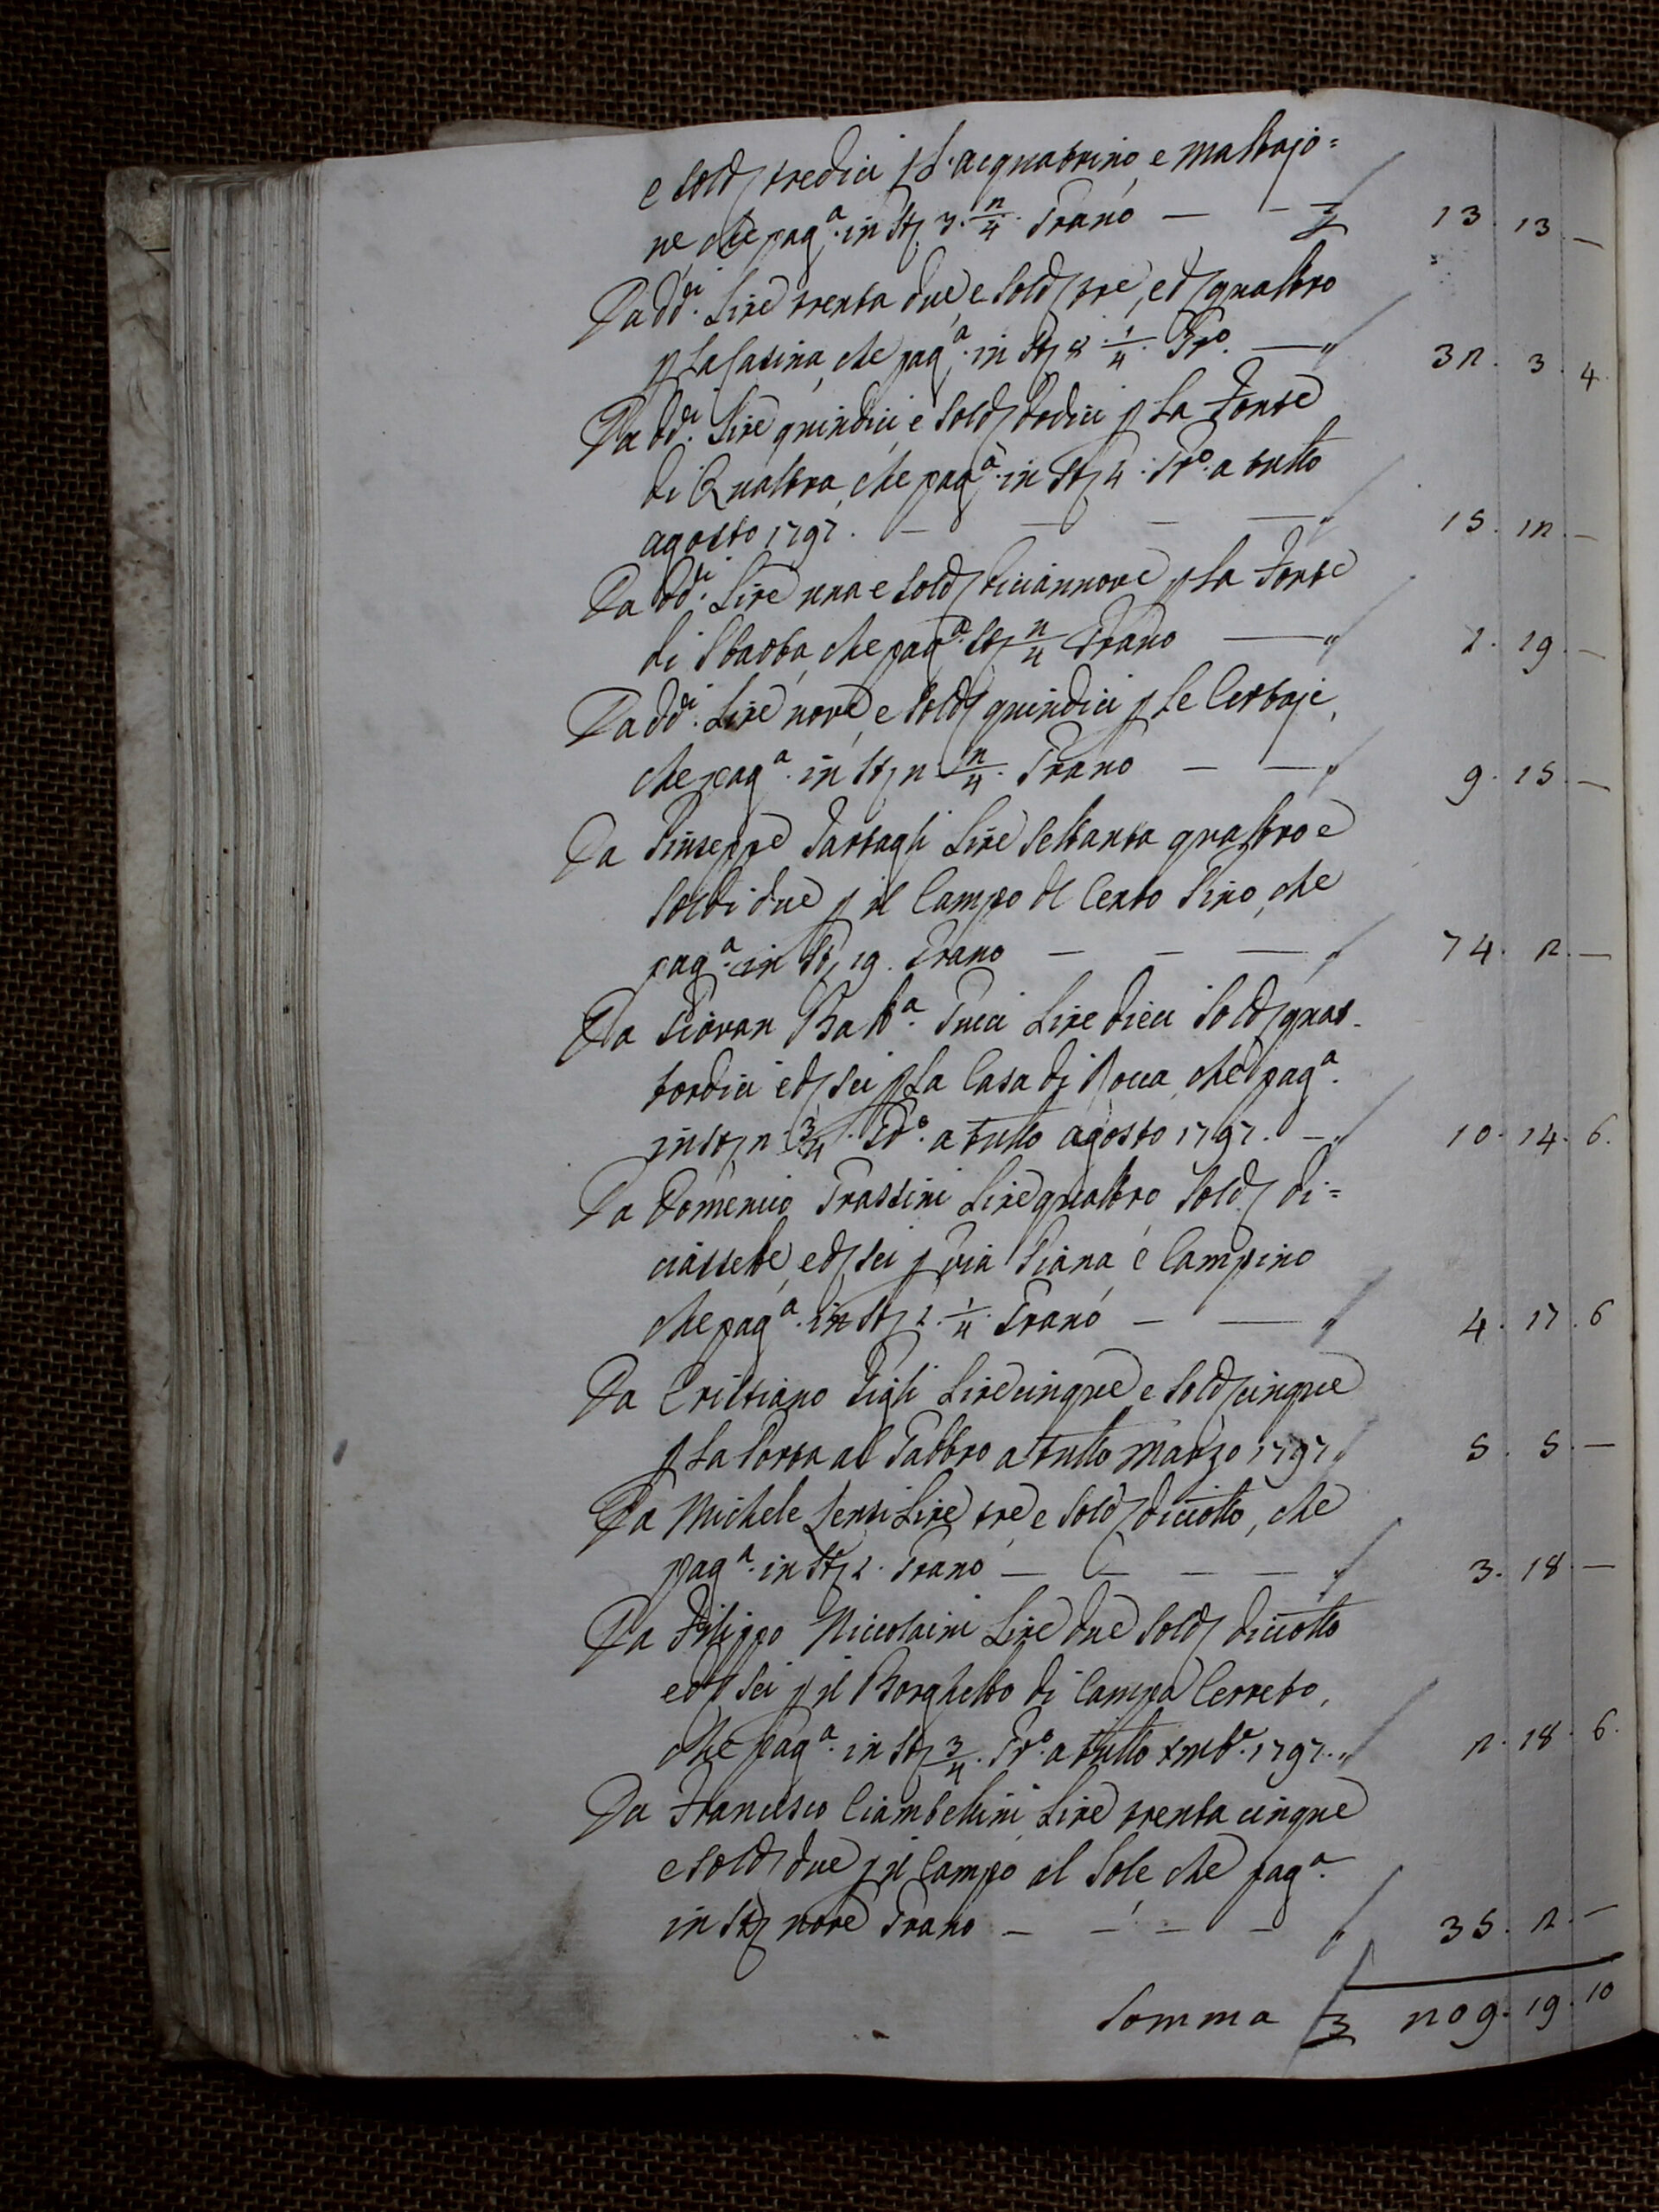 e sold tredici p l'acquatrino, e mattajo=
ne, che pagᵃ. in St 3. 2/4. Grano — - £ 13. 13. —
Da ddⁱ. Lire trenta due, e sold tre, e d quattro
p la Casina, che pagᵃ. in St 8. 1/4. Grº. — " 32. 3. 4.
Da ddⁱ. Lire quindici, e sold dodici p la Fonte
di Quattra, che pagᵃ. in St 4. Grº. a tutto
agosto 1797. — — — — " 15. 12. —
Da ddⁱ. Lire una e sold diciannove p la Fonte
di Sbarba, che pagᵃ. St 2/4 Grano — " 1. 19. —
Da ddⁱ. Lire nove, e sold quindici p le Cerbaje,
che pagᵃ. in St 2. 2/4. Grano — — " 9. 15. —
Da Giuseppe Tartagli Lire Settanta quattro e
soldi due p il Campo di Cento Lino, che
pagᵃ. in St 19. Grano — — — " 74. 2. —
Da Giovan Battᵃ. Tuci Lire dieci sold quat-
tordici e d sei p la Casa di Rocca, che pagᵃ.
in St 2. 3/4. Grº. a tutto agosto 1797. — " 10. 14. 6.
Da Domenico Grassini Lire quattro sold di=
ciassette, e d sei p via Piana, e Campino
che pagᵃ. in St 1. 1/4. Grano — — " 4. 17. 6
Da Cristiano Gigli Lire cinque e sold cinque
p la Porta al Fabbro a tutto Marzo 1797 " 5. 5. —
Da Michele Sensi Lire tre, e sold diciotto, che
pagᵃ. in St 1. Grano — — — — " 3. 18. —
Da Filippo Niccolaini Lire due sold diciotto
e d sei p il Borghetto di Campa Cerreto,
che pagᵃ. in St 3/4. Grº. a tutto xmbᵉ. 1797. " 2. 18. 6.
Da Francesco Ciambellini Lire trenta cinque
e sold due p il Campo al Sole che pagᵃ.
in St nove Grano — — — — " 35. 2. —
Somma £ 209. 19. 10